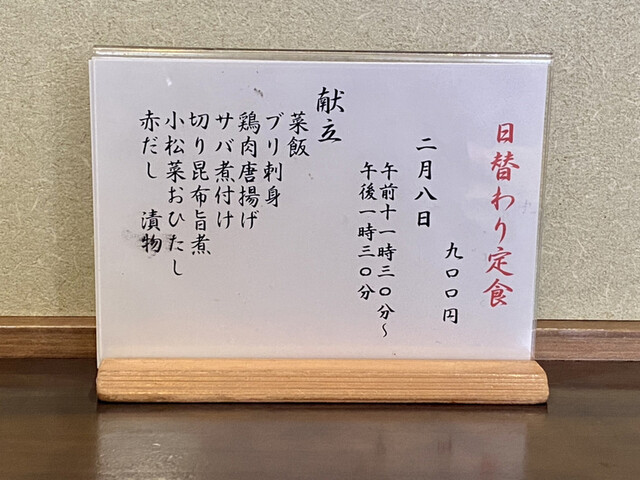 日替わり定食
九〇〇円
二月八日
午前十一時三〇分～
午後一時三〇分
献立
菜飯
ブリ刺身
鶏肉唐揚げ
サバ煮付け
切り昆布旨煮
小松菜おひたし
赤だし 漬物